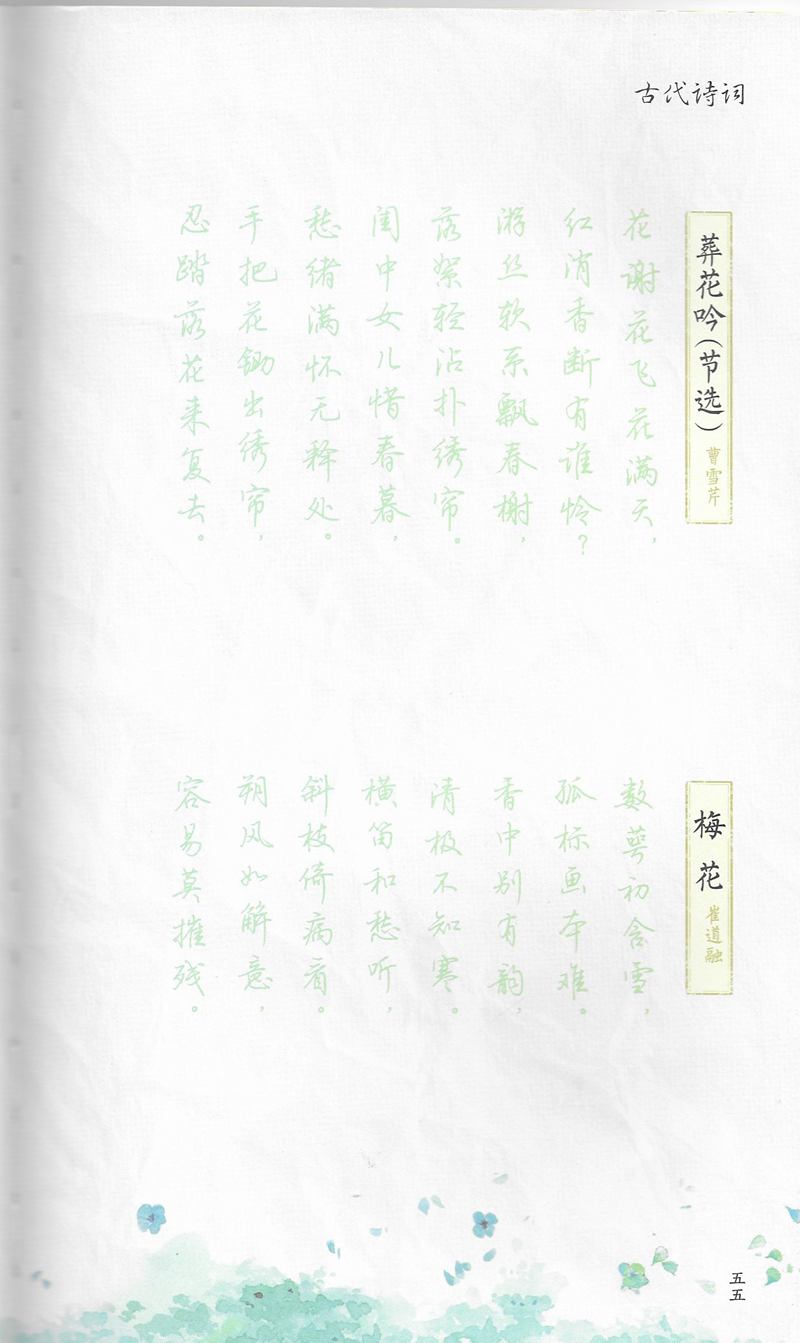 古代诗词
葬花吟（节选）
曹雪芹
花谢花飞花满天，
红消香断有谁怜？
游丝软系飘春榭，
落絮轻沾扑绣帘。
闺中女儿惜春暮，
愁绪满怀无释处。
手把花锄出绣帘，
忍踏落花来复去。
梅花
崔道融
数萼初含雪，
孤标画本难。
香中别有韵，
清极不知寒。
横笛和愁听，
斜枝倚病看。
朔风如解意，
容易莫摧残。
五五